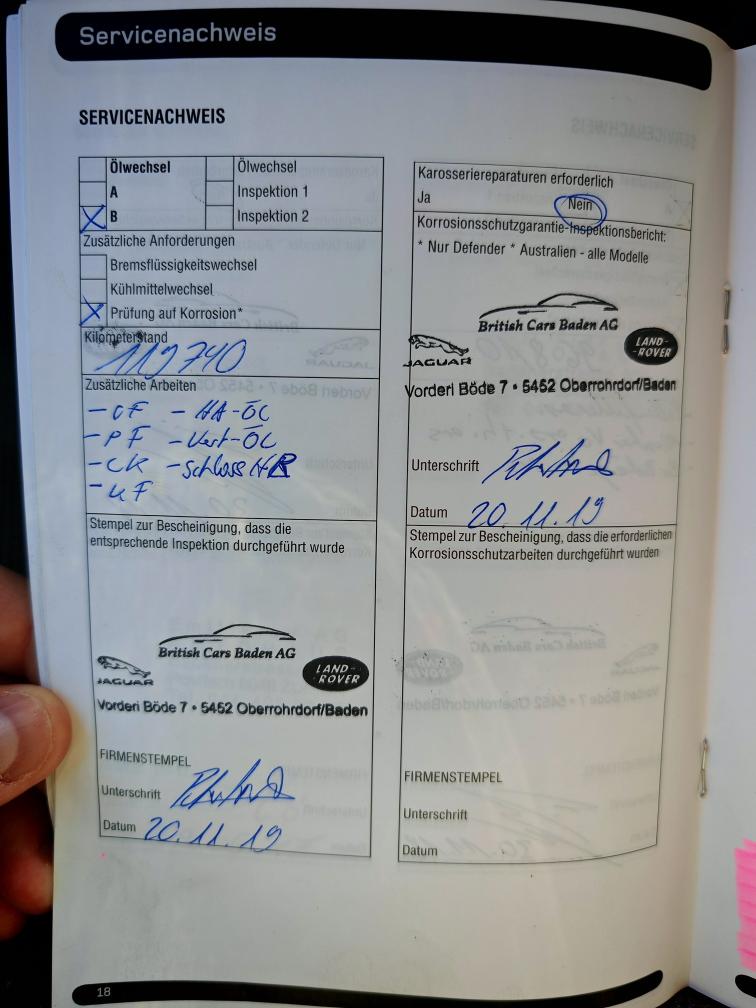 Servicenachweis
SERVICENACHWEIS
Ölwechsel Ölwechsel
A Inspektion 1
B Inspektion 2
Zusätzliche Anforderungen
Bremsflüssigkeitswechsel
Kühlmittelwechsel
Prüfung auf Korrosion*
Kilometerstand
119740
Zusätzliche Arbeiten
- PF
Stempel zur Bescheinigung, dass die
entsprechende Inspektion durchgeführt wurde
British Cars Baden AG
JAGUAR
LAND-
-ROVER
Vorderi Böde 7 • 5452 Oberrohrdorf/Baden
FIRMENSTEMPEL
Unterschrift
Datum 20.11.19
Karosseriereparaturen erforderlich
Ja Nein
Korrosionsschutzgarantie-Inspektionsbericht:
* Nur Defender * Australien - alle Modelle
British Cars Baden AG
JAGUAR
LAND-
-ROVER
Vorderi Böde 7 • 5452 Oberrohrdorf/Baden
Unterschrift
Datum 20.11.19
Stempel zur Bescheinigung, dass die erforderlichen
Korrosionsschutzarbeiten durchgeführt wurden
FIRMENSTEMPEL
Unterschrift
Datum
18